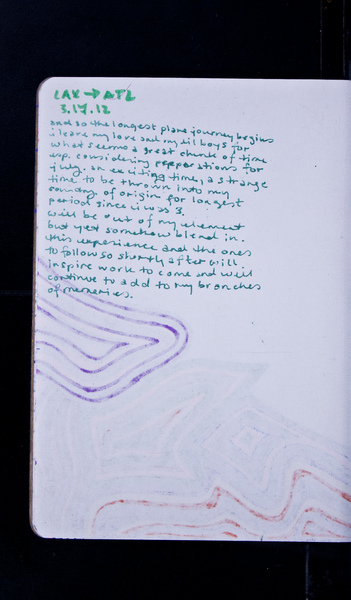 LAX → ATL
3.17.12
and so the longest plane journey begins
i leave my love and my lil boys for
what seems a great chunk of time
esp. considering preparations for
july. an exciting time, a strange
time to be thrown into my
country of origin for longest
period since i was 3.
will be out of my element
but yet somehow blend in.
this experience and the ones
to follow so shortly after will
inspire work to come and will
continue to add to my branches
of memories.